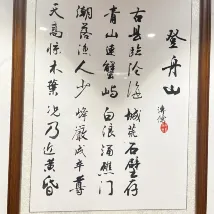 登舟山
古县临沧海 城荒石壁存
青山連蟹嶼 白浪涌礁门
潮落渔人少 烽嚴戍卒尊
天高惊木葉 况乃近黄昏